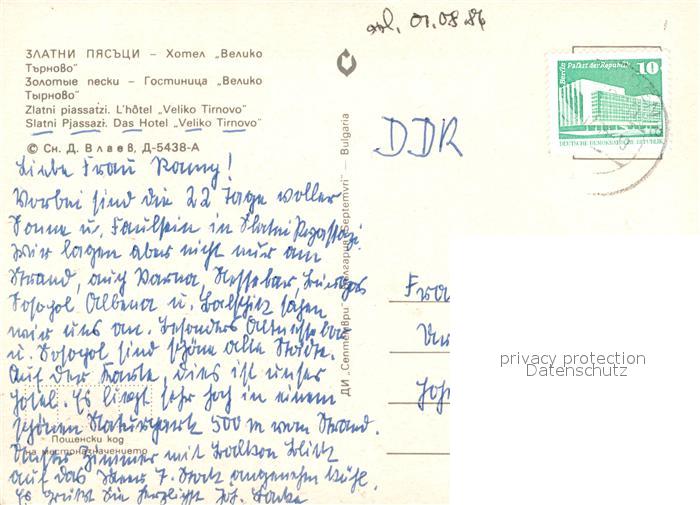 erl. 01.08.86
ЗЛАТНИ ПЯСЪЦИ – Хотел „Велико
Търново“
Золотые пески – Гостиница „Велико
Тырново“
Zlatni piassatzi. L'hôtel „Veliko Tirnovo“
Slatni Pjassazi. Das Hotel „Veliko Tirnovo“
© Сн. Д. Влаев, Д-5438-А
Liebe Frau
Vorbei sind die 22 Tage voller
Sonne u. Faulsein in Slatni Pjassazi.
Wir lagen aber nicht nur am
Strand, auch Varna, Nessebar, Burgas
Sosopol Albena u. Baltschik sahen
wir uns an. Besonders Altnessebar
u. Sosopol sind schöne alte Städte.
Auf der Karte, dies ist unser
Hotel. Es liegt sehr hoch in einem
schönen Naturpark 500 m vom Strand.
Unser Zimmer mit Balkon Blick
auf das Meer 7. Stock, angenehm kühl.
Es grüßt Sie herzlichst Joh.
Пощенски код
на местоназначението
ДИ „Септември“ България „Septemvri“ – Bulgaria
DDR
Berlin Palast der Republik
10
DEUTSCHE DEMOKRATISCHE REPUBLIK
Fra
Joh
privacy protection
Datenschutz